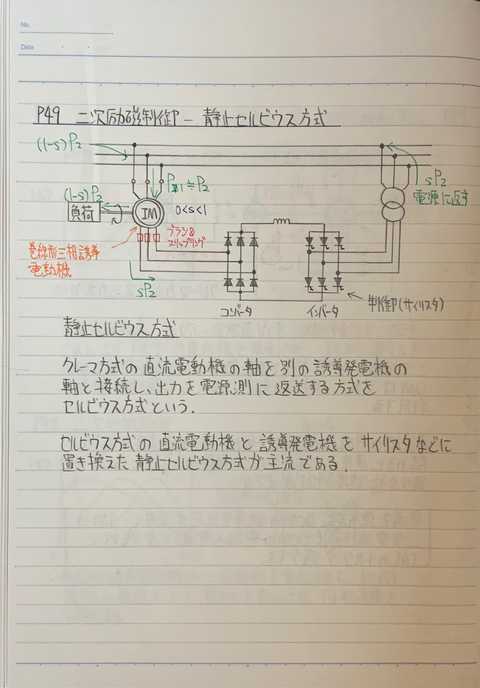 No.
Date
P49 二次励磁制御 - 静止セルビウス方式
(1-s)P2
P1≒P2
sP2
電源に返す
(1-s)P2
負荷
n
IM
0<s<1
ブラシ&
スリップリング
巻線形三相誘導
電動機
sP2
コンバータ
インバータ
制御(サイリスタ)
静止セルビウス方式
クレーマ方式の直流電動機の軸を別の誘導発電機の
軸と接続し、出力を電源側に返送する方式を
セルビウス方式という.
セルビウス方式の直流電動機と誘導発電機をサイリスタなどに
置き換えた静止セルビウス方式が主流である.